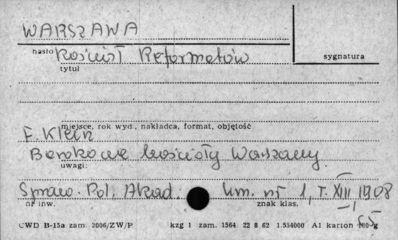 WARSZAWA
hasło Kościół Reformatów
sygnatura
tytuł
miejsce, rok wyd., nakładca, format, objętość
E. Klein
Barokowe kościoły Warszawy
uwagi:
Spraw. Pol. Akad. Um. nr 1, T. XIII, 1908
nr inw.
znak klas.
CWD B-15a zam. 2006/ZW/P kzg 1 zam. 1564 22 8 62 1.554000 A1 karton